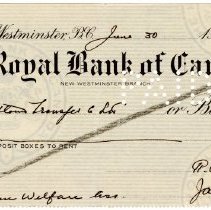 Westminster, B.C. June 30 1
Royal Bank of Can
NEW WESTMINSTER BRANCH
Transfer Co Ltd or B
POSIT BOXES TO RENT
R.
Welfare Ass.
Ja